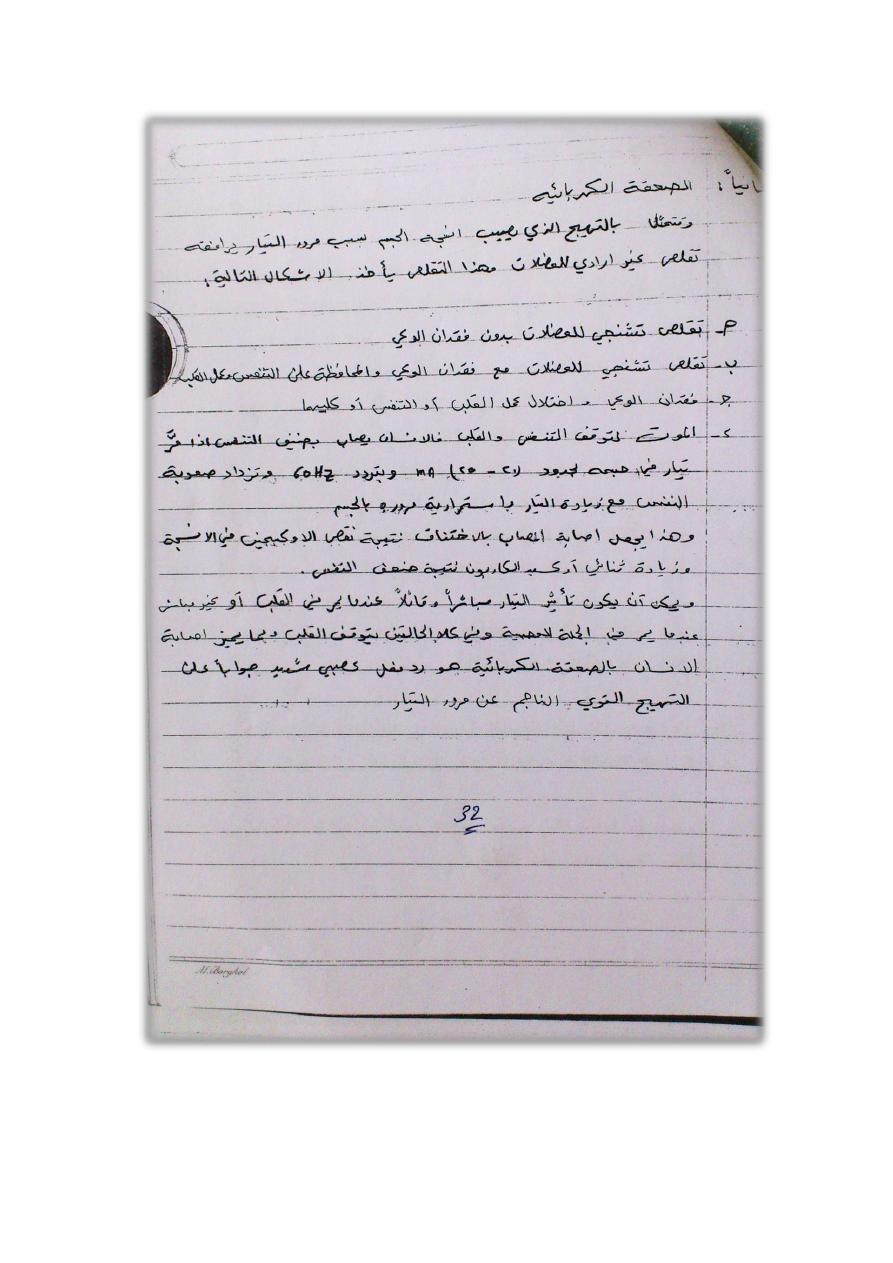 انياً: الصعقة الكهربائيه
وتتمثل بالتهيج الذي يصيب انسجة الجسم بسبب مرور التيار يرافقه
تقلص غير ارادي للعضلات وهذا التقلص يأخذ الاشكال التالية:
P- تقلص تشنجي للعضلات بدون فقدان الوعي
ب- تقلص تشنجي للعضلات مع فقدان الوعي والمحافظة على التنفس وعمل القلب
ج- فقدان الوعي و اختلال عمل القلب أو التنفس أو كليهما
د- الموت لتوقف التنفس والقلب فالانسان يصاب بضيق التنفس اذا مرَّ
تيار في جسمه بحدود (20 - 25) mA وبتردد 60Hz وتزداد صعوبة
التنفس مع زيادة التيار واستمرارية مروره بالجسم
وهذا يجعل اصابة المصاب بالاختناق نتيجة نقص الاوكسجين في الانسجة
وزيادة ثنائي أوكسيد الكاربون نتيجة ضعف التنفس.
ويمكن أن يكون تأثير التيار مباشراً وقاتلاً عندما يمر في القلب أو غير مباشر
عندما يمر في الجملة العصبية وفي كلا الحالتين يتوقف القلب وبما يميز اصابة
الانسان بالصعقة الكهربائية هو رد فعل عصبي شديد جواباً على
التهيج القوي الناجم عن مرور التيار
32
M.Barghol